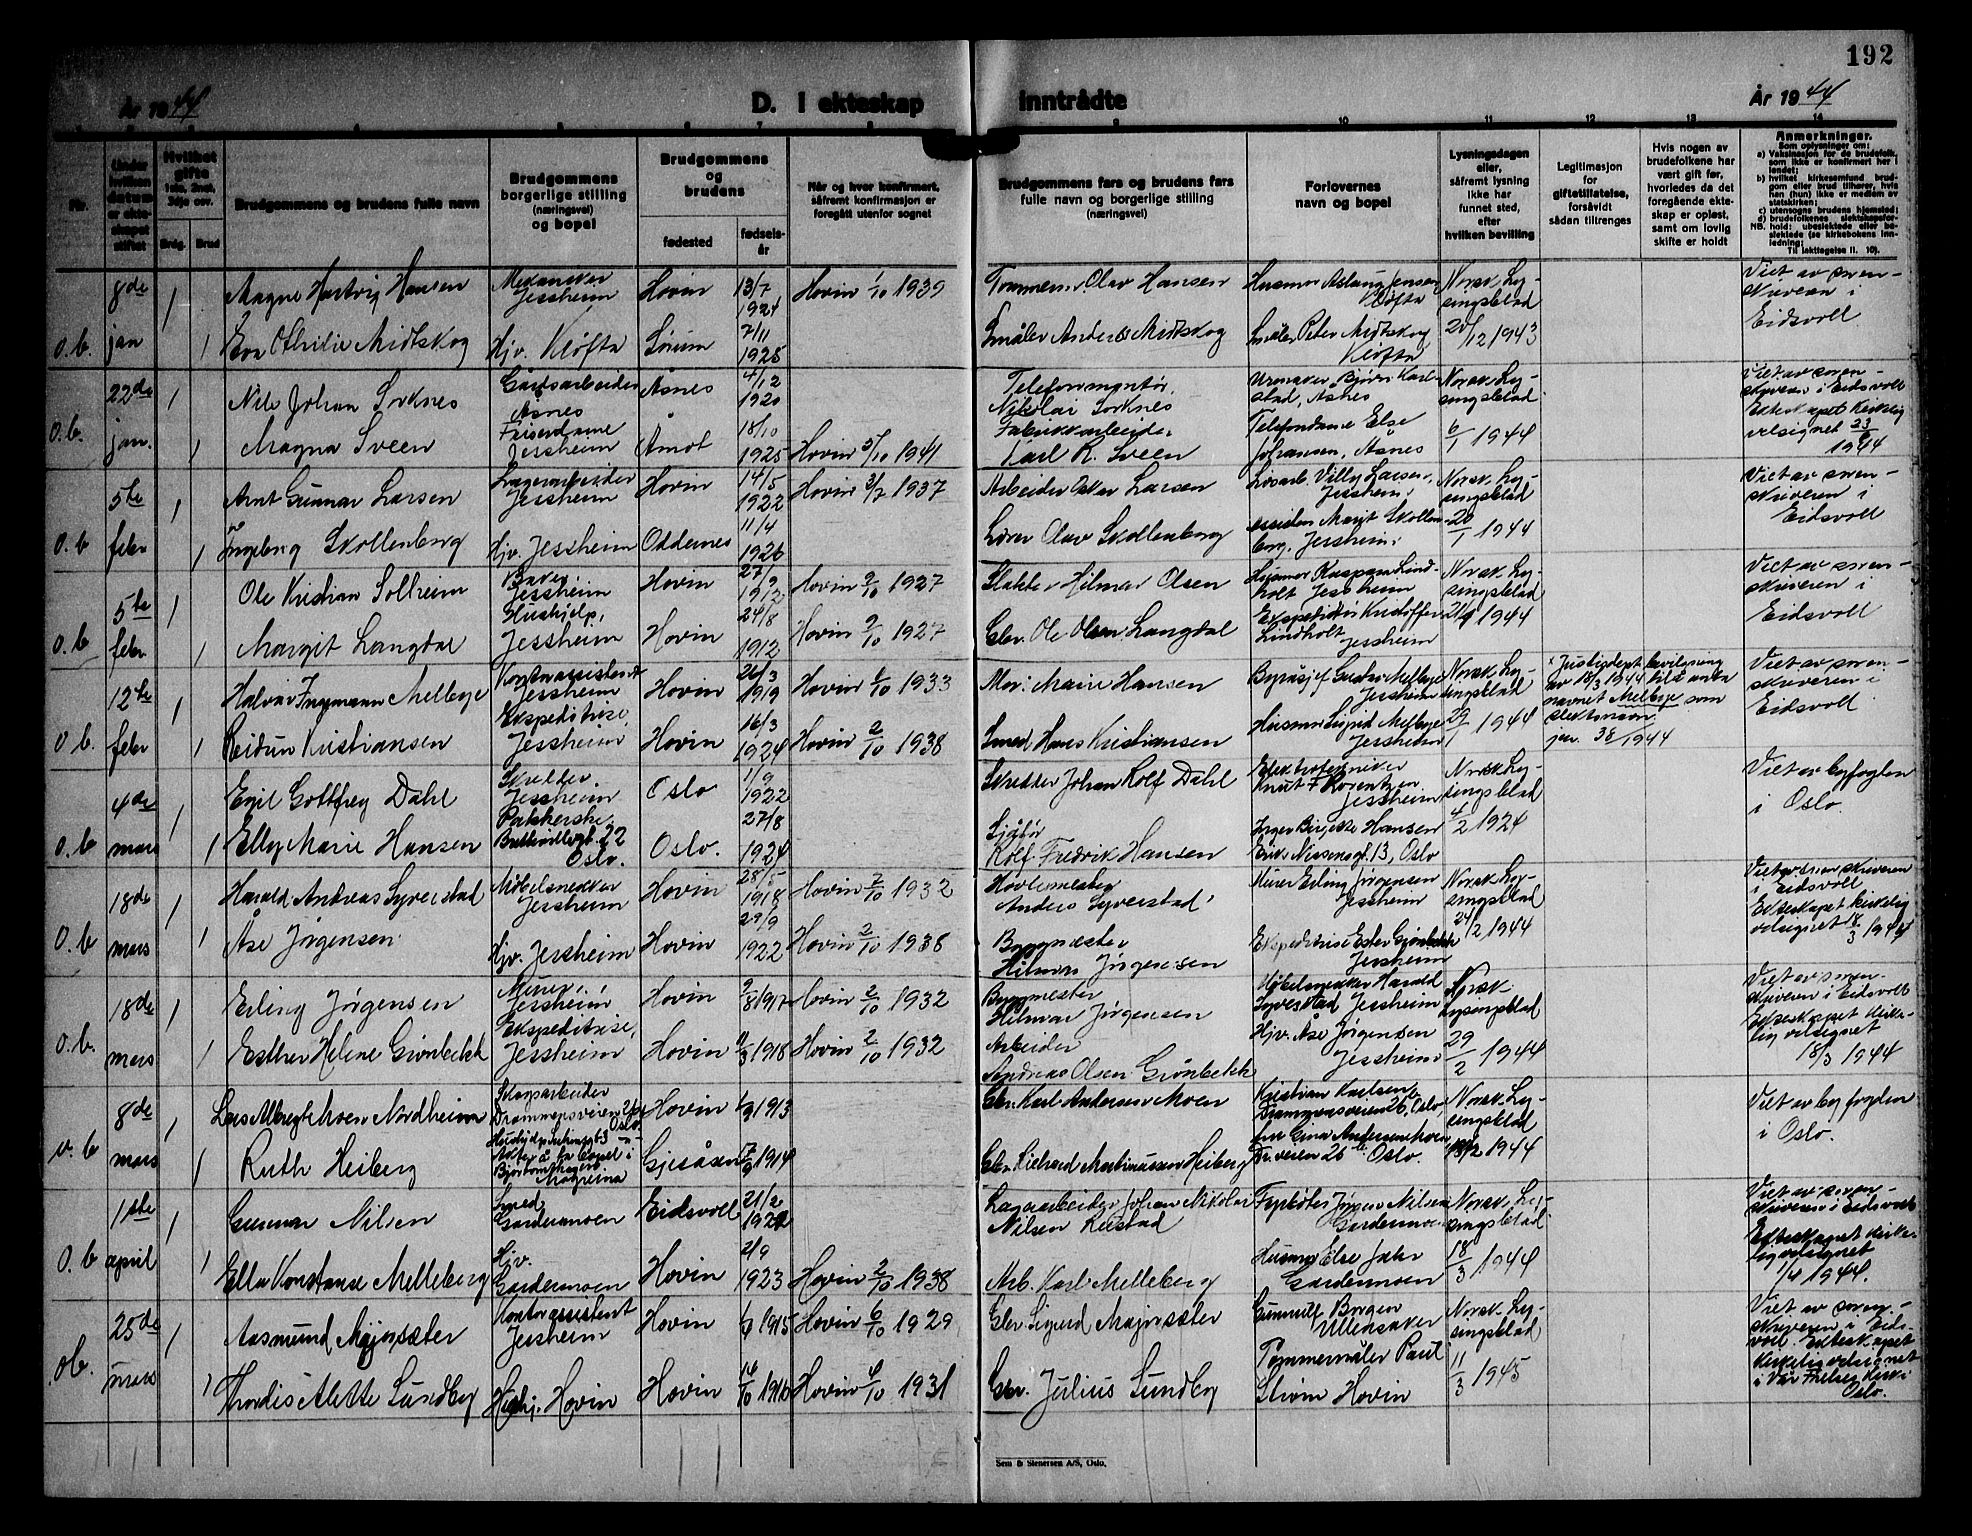 192
År 1944 D. I ekteskap inntrådte År 1944
Nr.
Under hvilken datum er ekteskapet stiftet
Hvilket gifte 1ste, 2net, 3dje osv.
Brdg. Brud
Brudgommens og brudens fulle navn
Brudgommens borgerlige stilling (næringsvei) og bopel
Brudgommens og brudens
fødested
fødselsår
Når og hvor konfirmert, såfremt konfirmasjon er foregått utenfor sognet
Brudgommens fars og brudens fars fulle navn og borgerlige stilling (næringsvei)
Forlovernes navn og bopel
Lysningsdagen eller, såfremt lysning ikke har funnet sted, efter hvilken bevilling
Legitimasjon for giftetillatelse, forsåvidt sådan tiltrenges
Hvis nogen av brudefolkene har vært gift før, hvorledes da det foregående ekteskap er opløst, samt om lovlig skifte er holdt
Anmerkninger.
Som oplysninger om:
a) Vaksinasjon for de brudefolk, som ikke er konfirmert her i landet;
b) hvilket kirkesamfund brudgom eller brud tilhører, hvis han (hun) ikke er medlem av statskirken;
c) utensogns brudens hjemsted;
d) brudefolkenes slektskapsforhold: ubeslektede eller beslektede (se kirkebokens innledning;
Til iakttagelse II. 10).
8de 1 Magne Hartvig Hansen Mekaniker Jessheim Hovin 13/7 1924 Hovin 1/10 1939 Tømmerm. Olav Hansen Husmor Aslaug Jensen Kløfta Norsk Lysingsblad Viet av sorenskriveren i Eidsvoll
o.b. jan 1 Eva Othilie Midtskog Hjv. Kløfta Sørum 7/11 1925 Småbr. Anders Midtskog Småbr. Peter Midtskog Kløfta 20/12 1943
22de 1 Nils Johan Sorknes Gårdsarbeider Åsnes Åsnes 4/12 1920 Telefonmontør Nikolai Sorknes Urmaker Bjørn Karlstad, Åsnes Norsk Lysingsblad Viet av sorenskriveren i Eidsvoll
o.b. jan. 1 Magna Sveen Friserdame Jessheim Åmot 18/10 1925 Hovin 5/10 1941 Fabrikkarbeider Karl R. Sveen Telefondame Else Johansen, Åsnes 6/1 1944 Ekteskapet kirkelig velsignet 1944
5te 1 Arnt Gunnar Larsen Lagerarbeider Jessheim Hovin 14/5 1922 Hovin 3/7 1937 Arbeider Oskar Larsen Løsarb. Villy Larsen, Jessheim Norsk Lysingsblad Viet av sorenskriveren i Eidsvoll
o.b. febr 1 Ingeborg Skollenborg Hjv. Jessheim Oddernes 11/4 1926 Lærer Olav Skollenborg Margit Skollenborg, Jessheim 20/1 1944
5te 1 Ole Kristian Solheim Baker Jessheim Hovin 27/9 1912 Hovin 9/10 1927 Slakter Hilmar Olsen Husmor Lindholt Jessheim Norsk Lysingsblad Viet av sorenskriveren i Eidsvoll
o.b febr 1 Margit Langdal Hushjelp, Jessheim Hovin 24/8 1912 Hovin 9/10 1927 Gbr. Ole Olsen Langdal Ekspeditør Kristoffer Lindholt Jessheim 21/1 1944
12te 1 Halvar Ingemann Melbye Kontorassistent Jessheim Hovin 26/3 1919 Hovin 1/10 1933 Mor: Marie Hansen Byråsjef Gustav Melbye Jessheim Norsk Lysingsblad Justisdept. bevilgning av 18/3 1944 til å anta navnet Melbye som slektsnavn. 1944 Viet av sorenskriveren i Eidsvoll
o.b. febr 1 Reidun Kristiansen Ekspeditrise, Jessheim Hovin 16/3 1924 Hovin 2/10 1938 Smed Hans Kristiansen Husmor Sigrid Melbye Jessheim 29/1 1944
4de 1 Egil Gottfrey Dahl Skredder Jessheim Oslo 1/9 1922 Skredder Johan Rolf Dahl Elektrotekniker Knut F. Lorentzen Jessheim Norsk Lysingsblad Viet av byfogden i Oslo.
o.b mars 1 Elly Marie Hansen Pakkerske, 22 Oslo. Oslo. 27/8 1924 Sjåfør Rolf Fredrik Hansen Inger Birgitte Hansen Eiriks Nissensgt. 13, Oslo 4/2 1924
18de 1 Harald Andreas Syverstad Møbelsnekker Jessheim Hovin 28/5 1918 Hovin 2/10 1932 Høvlemester Anders Syverstad Murer Erling Jørgensen Jessheim Norsk Lysingsblad Viet av sorenskriveren i Eidsvoll
o.b mars 1 Åse Jørgensen Hjv. Jessheim Hovin 29/9 1922 Hovin 2/10 1938 Byggmester Hilmar Jørgensen Ekspeditrise Ester Grønbekk Jessheim 24/2 1944 Ekteskapet kirkelig velsignet 18/3 1944
18de 1 Erling Jørgensen Murer, Jessheim Hovin 9/8 1917 Hovin 2/10 1932 Byggmester Hilmar Jørgensen Møbelsnekker Harald Syverstad Jessheim Norsk Lysingsblad Viet av sorenskriveren i Eidsvoll
o.b. mars 1 Esther Helene Grønbekk Ekspeditrise, Jessheim Hovin 1918 Hovin 2/10 1932 Arbeider Andreas Olsen Grønbekk Hjv. Åse Jørgensen Jessheim 29/2 1944 Ekteskapet kirkelig velsignet 18/3 1944
8de 1 Lars Albregt Moen Nordheim Skogsarbeider Drammensveien Oslo Hovin 1913 Gbr. Karl Andersen Moen Kristian Karlsen Drammensveien 26, Oslo Norsk Lysingsblad Viet av byfogden i Oslo.
o.b mars 1 Ruth Heiberg Gjesåsen 1914 Gbr. Richard Martinussen Heiberg Gina Andersen Moen Dr. veien 26 Oslo. 1944
1ste 1 Gunnar Nilsen Smed Gardermoen Eidsvoll 21/2 1921 Lagerarbeider Johan Nikolai Nilsen Rustad Fyrbøter Jørgen Nilsen Gardermoen Norsk Lysingsblad Viet av sorenskriveren i Eidsvoll
o.b april 1 Ella Konstanse Melleberg Hjv. Gardermoen Hovin 2/9 1923 Hovin 2/10 1938 Arb. Karl Melleberg Husmor Else Jahr Gardermoen 18/3 1944 Ekteskapet kirkelig velsignet 1/4 1944.
25de 1 Aasmund Majorsæter Kontorassistent Jessheim Hovin 1915 Hovin 6/10 1929 Gbr. Sigurd Majorsæter Gunnulf Borgen Ullensaker Norsk Lysingsblad Viet av sorenskriveren i Eidsvoll. Ekteskapet
ob. mars 1 Thordis Alette Sundby Hushj. Hovin Hovin 16/10 1916 Hovin 4/10 1931 Gbr. Julius Sundby Tømmermåler Paul Strøm Hovin 11/3 1945 kirkelig velsignet i Vår Frelsers kirke i Oslo.
Sem & Stenersen A/S, Oslo.